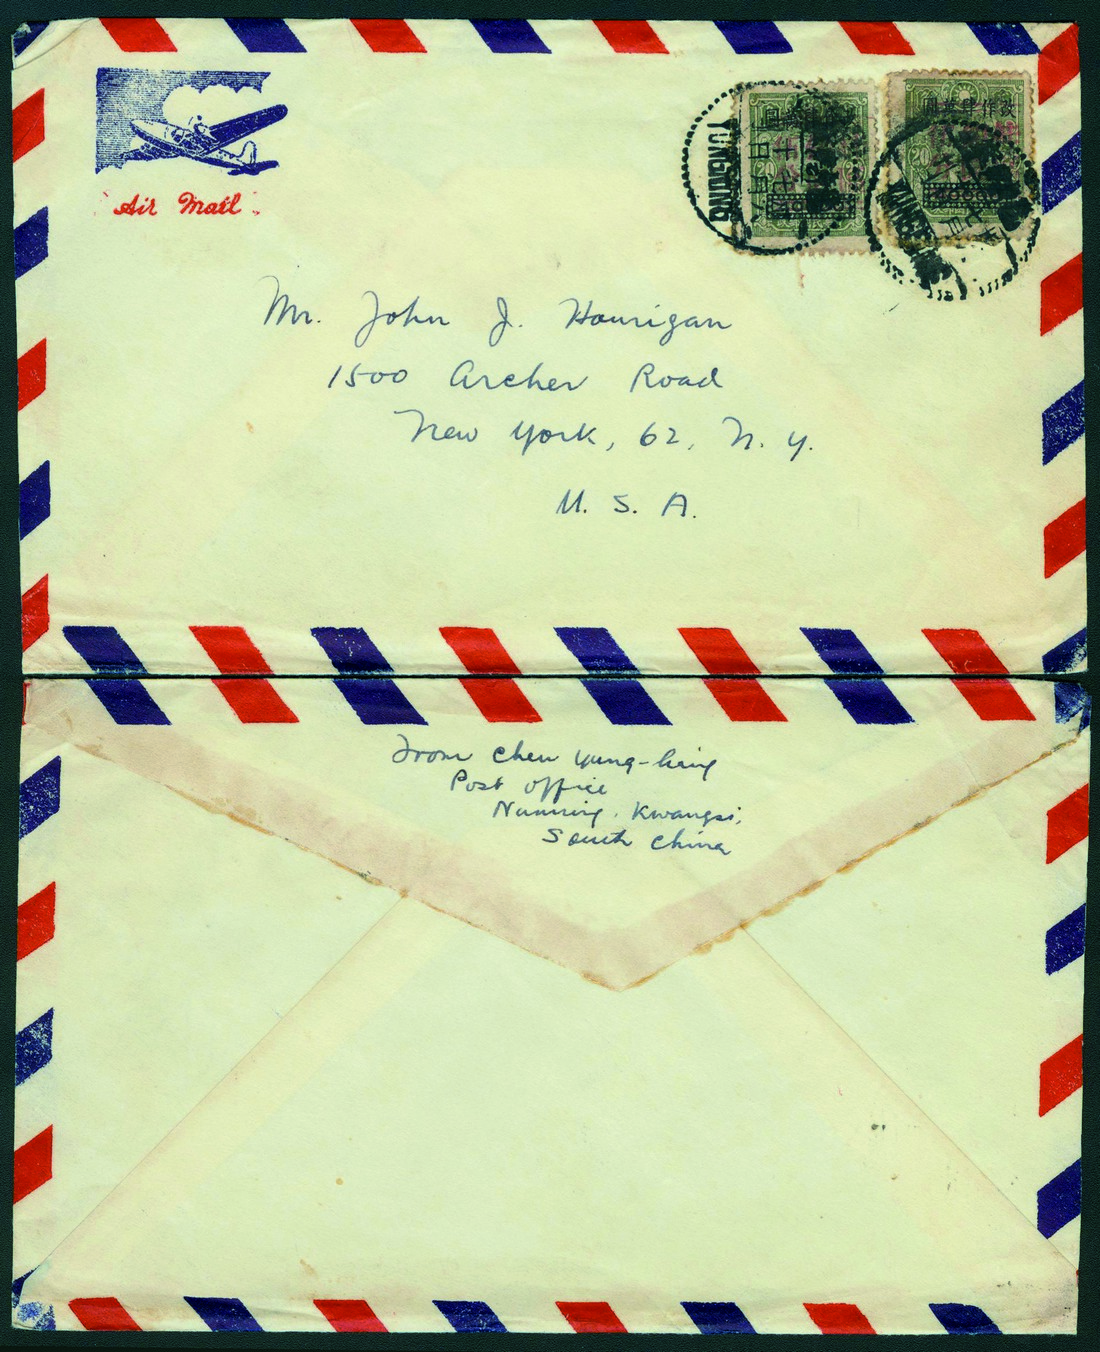 Air Mail
改作肆萬圓
YUNGNING
Mr. John J. Hourigan
1500 Archer Road
New York, 62, N. Y.
U. S. A.
From Chen Yung-
Post office
Nanning, Kwangsi,
South China